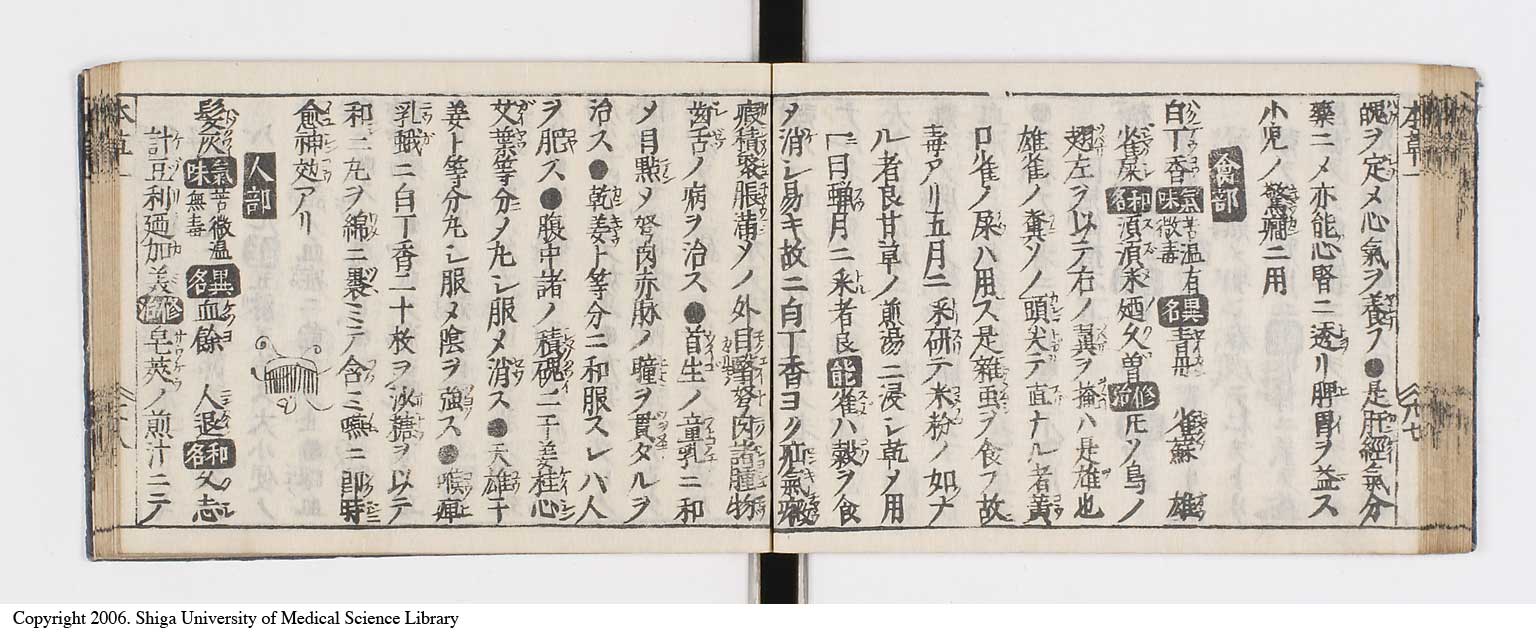 魄ヲ定メ心氣ヲ養フ●是肝經氣分
藥ニメ亦能心腎ニ透リ脾胃ヲ益ス
小児ノ驚癇ニ用
禽部
白丁香 氣味 苦温有微毒 異名 青丹 雀蘇 雄
雀屎 和名 須須米廼久曽 修治 凡ソ鳥ノ
翅左ヲ以テ右ノ翼ヲ掩ハ是雄也
雄雀ノ糞ソノ頭尖テ直ナル者黄
口雀ノ屎ハ用ス是雑虫ヲ食フ故
毒アリ五月ニ采研テ米粉ノ如ナ
ル者良甘草ノ煎湯ニ浸シ乾メ用
一曰蝉月ニ采者良 能 雀ハ穀ヲ食
メ消シ易キ故ニ白丁香ヨク疝氣瘕
癥積聚脹満メノ外目翳努肉諸腫物
歯舌ノ病ヲ治ス●首生ノ童乳ニ和
メ目點メ努肉赤脉ノ瞳ヲ貫タルヲ
治ス●乾姜ト等分ニ和服スレハ人
ヲ肥ス●腹中諸ノ積塊ニ干姜桂心
艾葉等分メ丸シ服メ消ス●天雄十
姜ト等分丸シ服メ陰ヲ強ス●喉痺
乳蛾ニ白丁香二十枚ヲ沙糖ヲ以テ
和二丸ヲ綿ニ裹ミテ含ミ嚥ニ即時
愈神效アリ
人部
髪灰 氣味 苦微温無毒 異名 血餘 人退 和名 久志
計豆利廼加美 修治 皂莢ノ煎汁ニテ
Copyright 2006. Shiga University of Medical Science Library